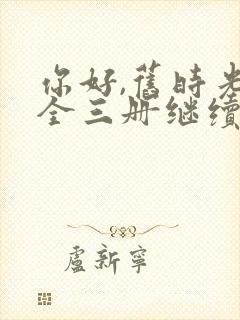 你好,舊時光
全三册继續
盧新寧